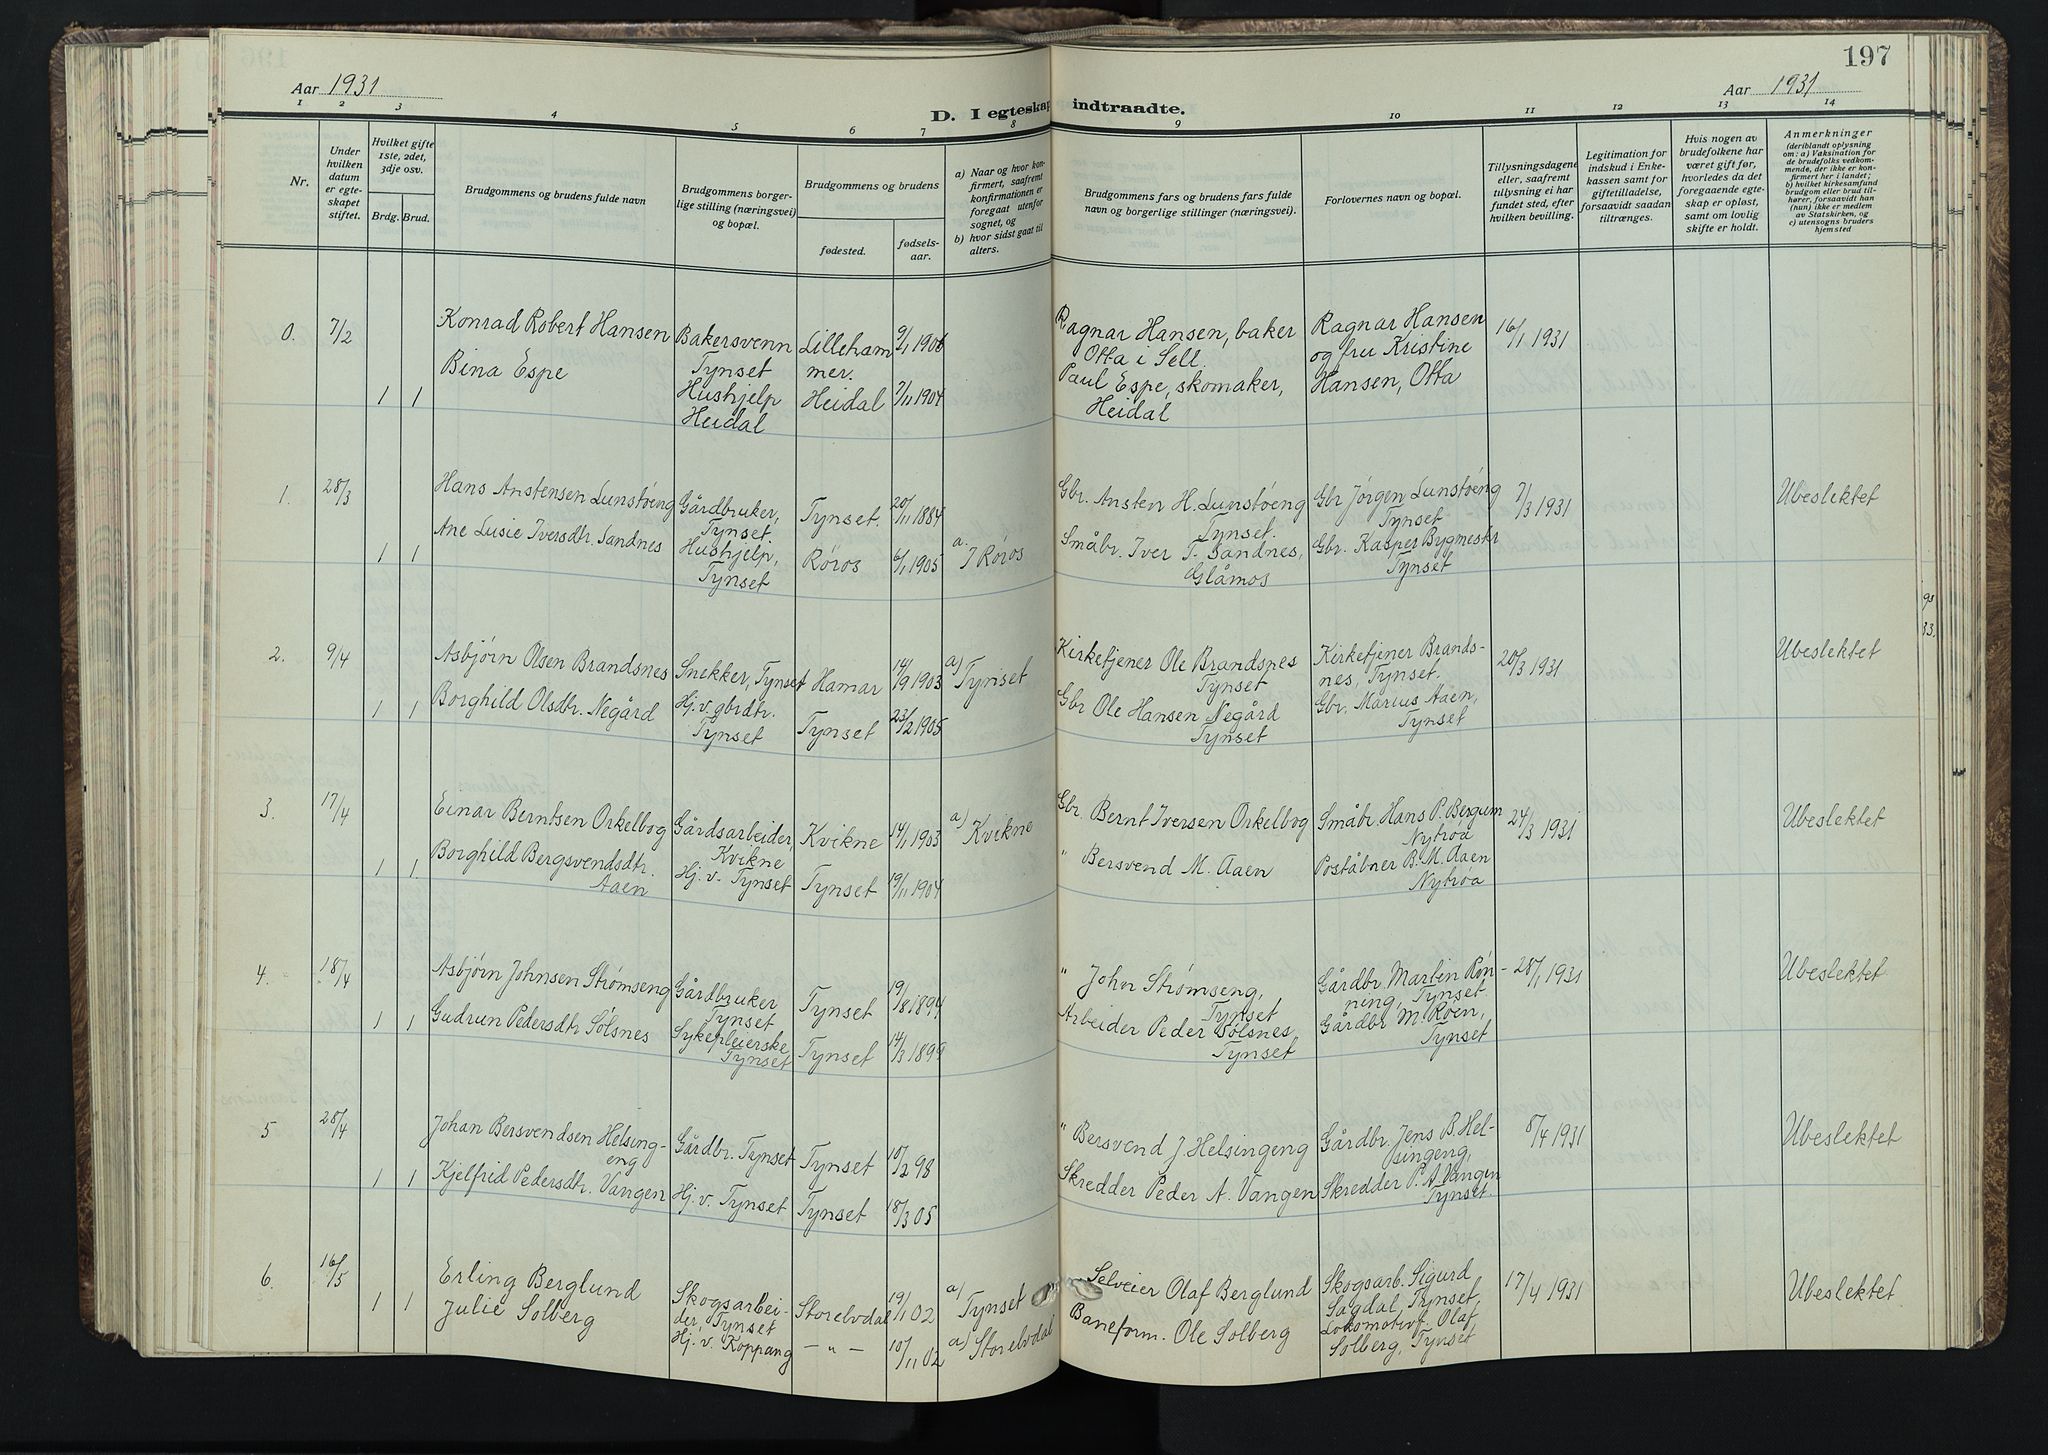 197
Aar 1931
Aar 1931
D. I egteskap indtraadte.
1 2 3 4 5 6 7 8 9 10 11 12 13 14
Nr.
Under hvilken datum er egteskapet stiftet.
Hvilket gifte 1ste, 2det, 3dje osv.
Brdg. Brud.
Brudgommens og brudens fulde navn
Brudgommens borgerlige stilling (næringsvei) og bopæl.
Brudgommens og brudens
fødested.
fødselsaar.
a) Naar og hvor konfirmert, saafremt konfirmationen er foregaat utenfor sognet, og
b) hvor sidst gaat til alters.
Brudgommens fars og brudens fars fulde navn og borgerlige stillinger (næringsvei).
Forlovernes navn og bopæl.
Tillysningsdagene eller, saafremt tillysning ei har fundet sted, efter hvilken bevilling.
Legitimation for indskud i Enkekassen samt for giftetilladelse, forsaavidt saadan tiltrænges.
Hvis nogen av brudefolkene har været gift før, hvorledes da det foregaaende egteskap er opløst, samt om lovlig skifte er holdt.
Anmerkninger (deriblandt oplysning om: a) Vaksination for de brudefolks vedkommende, der ikke er konfirmert her i landet; b) hvilket kirkesamfund brudgom eller brud tilhører, forsaavidt han (hun) ikke er medlem av Statskirken, og c) utensogns bruders hjemsted
0. 7/2 1 1
Konrad Robert Hansen
Bina Espe
Bakersvenn
Tynset
Hushjelp
Heidal
Lillehammer.
Heidal
9/1 1906
7/11 1904
Ragnar Hansen, baker
Otta i Sell.
Paul Espe, skomaker,
Heidal
Ragnar Hansen
og fru Kristine
Hansen, Otta
16/1 1931
1. 28/3 1 1
Hans Anstensen Lunstøeng
Ane Lusie Iversdtr. Sandnes
Gårdbruker,
Tynset.
Hushjelp,
Tynset
Tynset.
Røros
20/11 1884
6/1 1905
a. I Røros
Gbr. Ansten H. Lunstøeng
Tynset.
Småbr. Iver T. Sandnes,
Glåmos
Gbr Jørgen Lunstøeng
Tynset
Gbr. Kasper Bygmestr
Tynset
7/3 1931
Ubeslektet
2. 9/4 1 1
Asbjørn Olsen Brandsnes
Borghild Olsdtr. Negård
Snekker, Tynset
Hj. v. gbrdtr.
Tynset
Hamar
Tynset
14/9 1903
23/2 1905
a) Tynset
Kirketjener Ole Brandsnes
Tynset
Gbr Ole Hansen Negård
Tynset
Kirketjener Brandsnes, Tynset.
Gbr. Marius Aaen,
Tynset
20/3 1931
Ubeslektet
3. 17/4 1 1
Einar Berntsen Orkelbog
Borghild Bergsvendsdtr.
Aaen
Gårdsarbeider,
Kvikne
Hj. v. Tynset
Kvikne
Tynset
14/1 1903
19/11 1904
a) Kvikne
Gbr. Bernt Iversen Orkelbog
" Bersvend M. Aaen
Småbr. Hans P. Bergum
Nytrøa
Poståbner B. M. Aaen
Nytrøa
24/3 1931
Ubeslektet
4. 18/4 1 1
Asbjørn Johnsen Strømseng
Gudrun Pedersdtr Sølsnes
Gårdbruker
Tynset
Sykepleierske
Tynset
Tynset
Tynset
19/8 1894
14/3 1899
" John Strømseng,
Tynset
Arbeider Peder Sølsnes,
Tynset
Gårdbr. Martin Rønning, Tynset.
Gårdbr M. Røen,
Tynset
28/1 1931
Ubeslektet
5 28/4 1 1
Johan Bersvendsen Helsingeng
Kjelfrid Pedersdtr. Vangen
Gårdbr. Tynset
Hj. v. Tynset
Tynset
Tynset
10/2 98
18/3 05
" Bersvend J. Helsingeng
Skredder Peder A. Vangen
Gårdbr. Jens B. Helsingeng,
Skredder P. A. Vangen
Tynset.
8/4 1931
Ubeslektet
6. 16/5 1 1
Erling Berglund
Julie Solberg
Skogsarbeider, Tynset
Hj. v. Koppang
Storelvdal
— " —
19/1 02
10/11 02
a) Tynset
a) Storelvdal
Selveier Olaf Berglund
Baneform. Ole Solberg
Skogsarb. Sigurd
Sagdal, Tynset
Lokomotivf. Olaf
Solberg, Tynset
17/4 1931
Ubeslektet